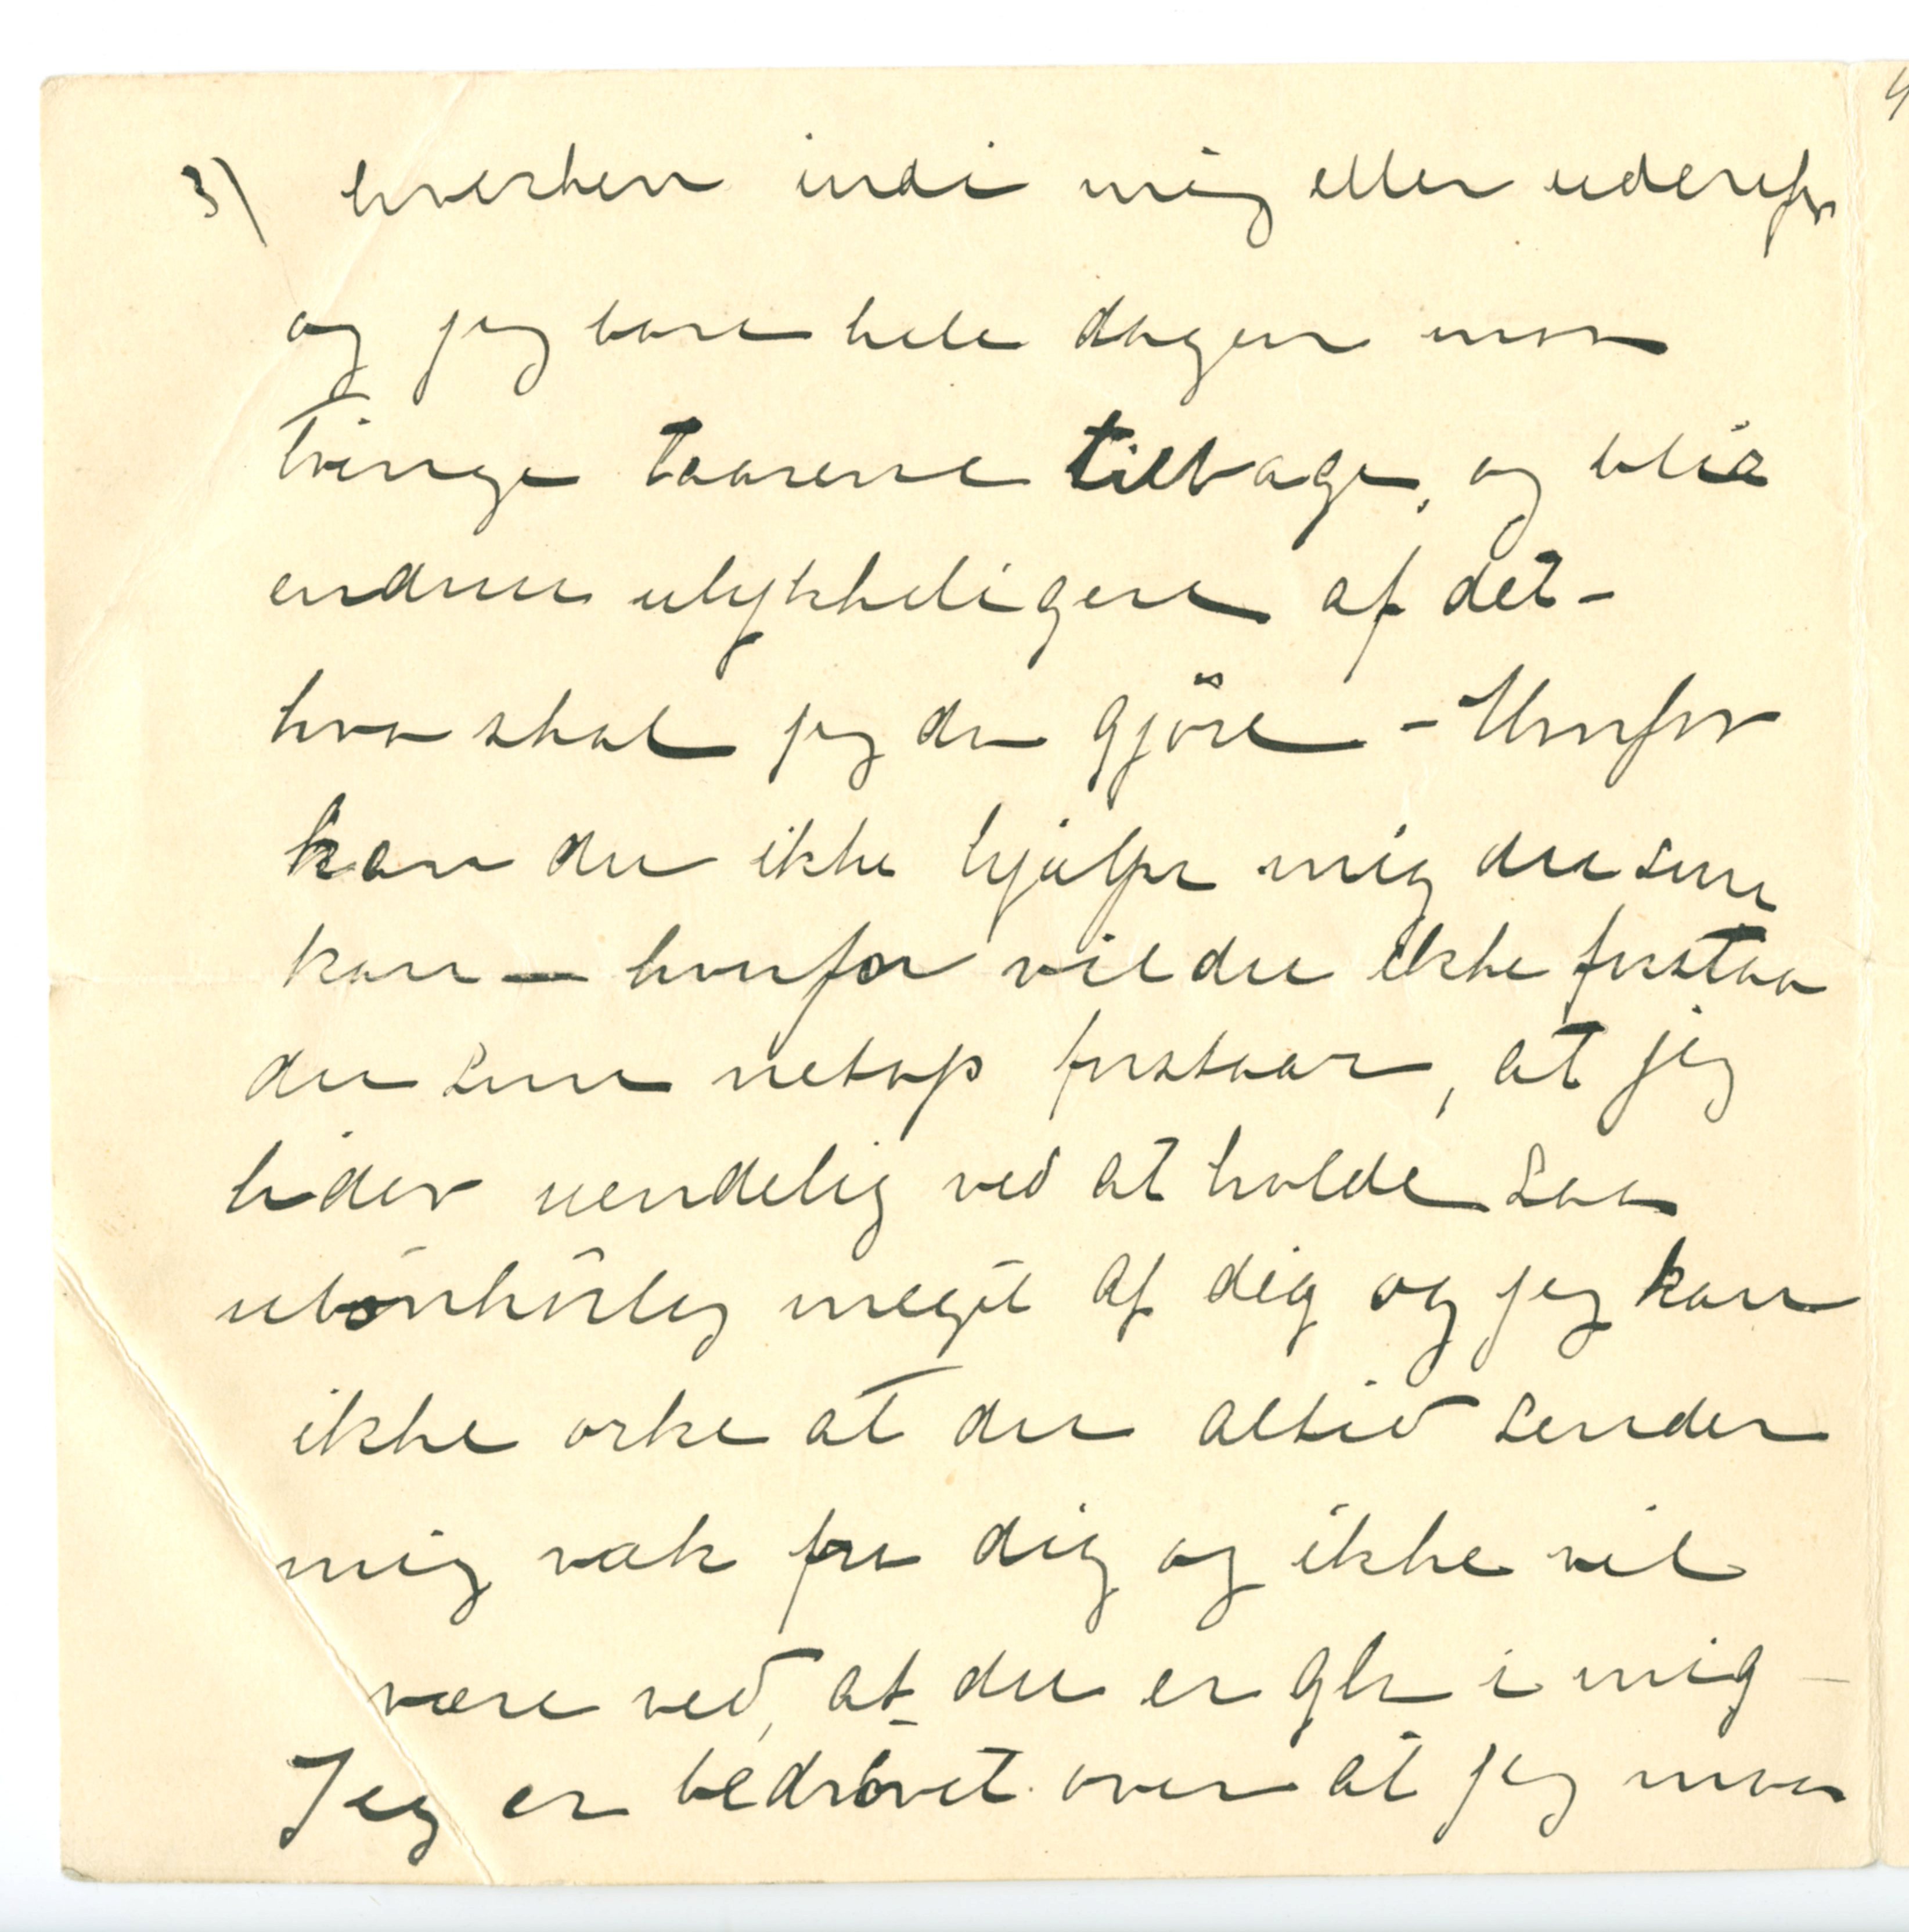 3) hverken indi mig eller udenfor
og jeg bare hele dagen maa
tvinge taarene tilbage, og blir
endnu ulykkeligere af det -
hva skal jeg da gjöre - Hvorfor
kan du ikke hjælpe mig du som
kan — hvorfor vil du ikke forstaa
du som netop forstaar, at jeg
lider uendelig ved at holde saa
ubönhörlig meget af dig og jeg kan
ikke orke at du altid sender
mig væk fra dig og ikke vil
være ved, at du er gla i mig -
Jeg er bedrövet over at jeg maa